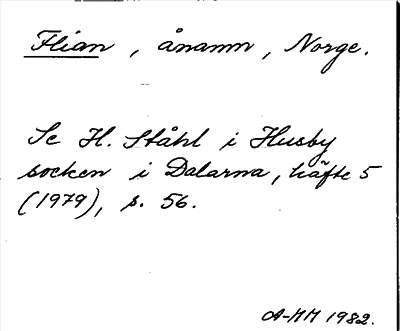 Flian, ånamn, Norge.
Se H. Ståhl i Husby
socken i Dalarna, häfte 5
(1979), s. 56.
A-MM 1982.